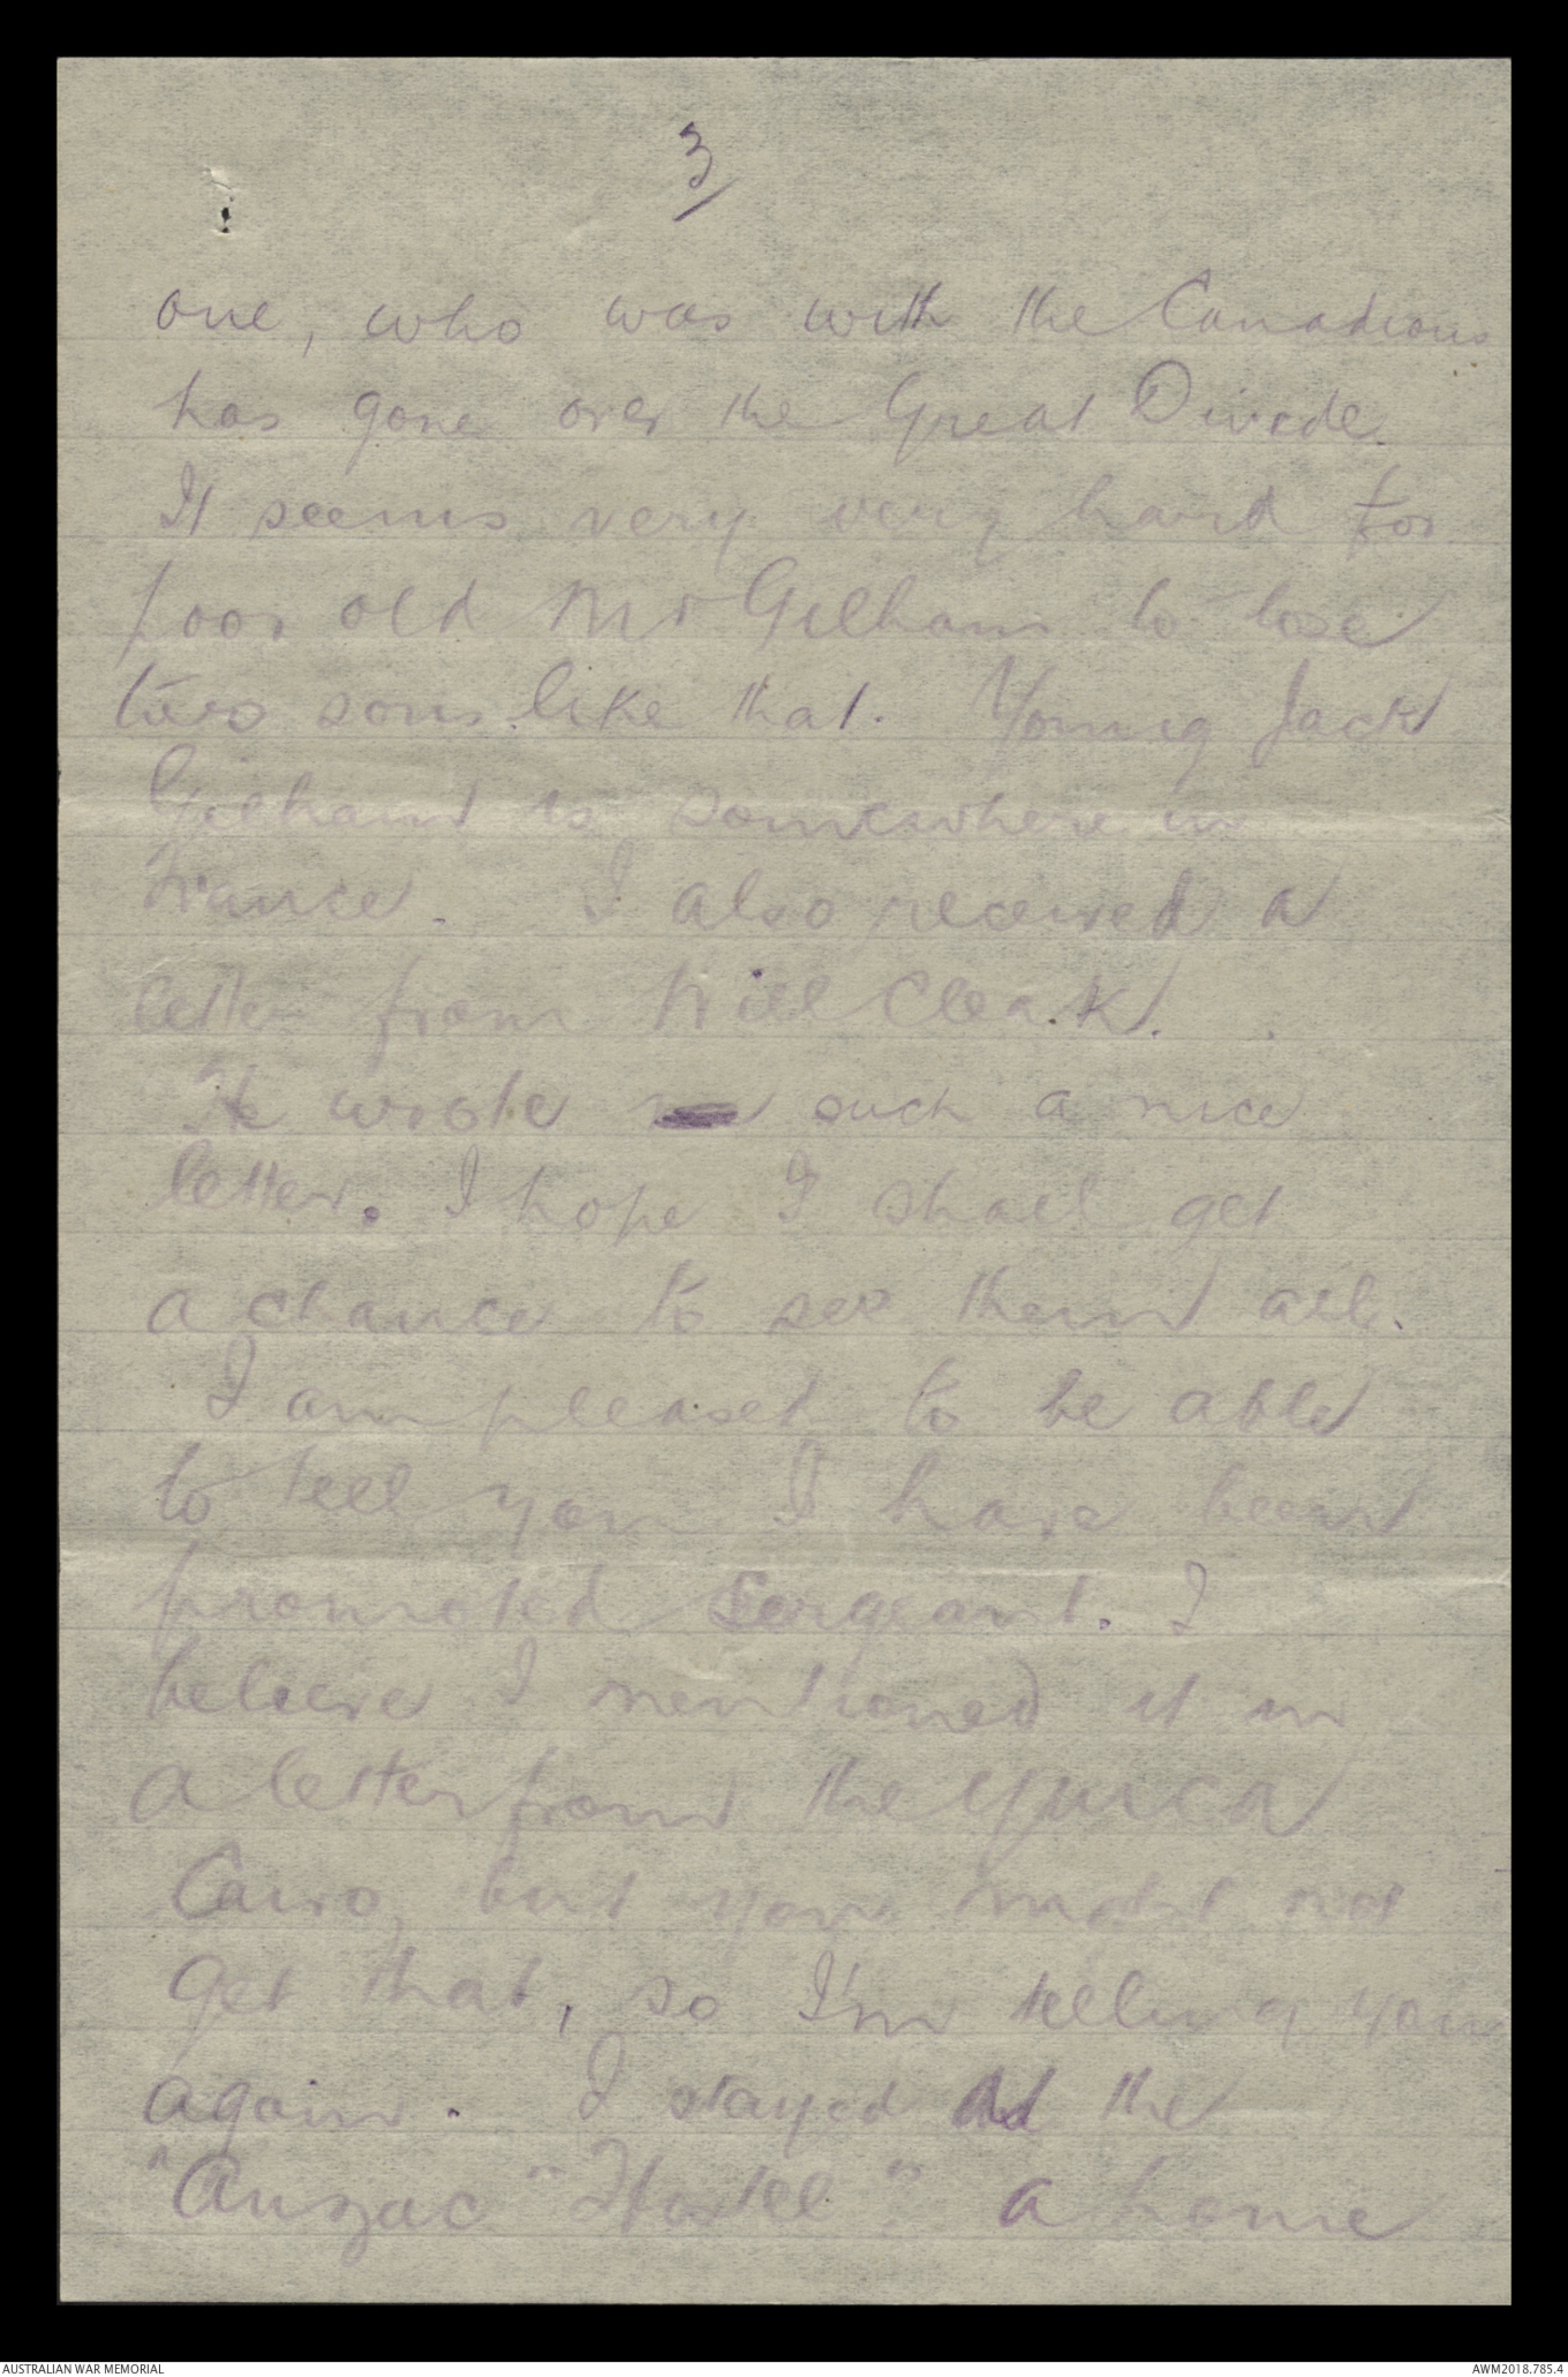 3
one, who was with the Canadians
has gone over the Great Divide.
It seems very very hard for
poor old Mr Gilham to lose
two sons like that. Young Jack
Gilham is somewhere in
France. I also received a
letter from Will Cloak.
He wrote such a nice
letter. I hope I shall get
a chance to see them all.
I am pleased to be able
to tell you I have been
promoted Sergeant. I
believe I mentioned it in
a letter from the YMCA
Cairo, but you might not
get that, so I'm telling you
again. I stayed at the
"Anzac" Hostel" a home
AUSTRALIAN WAR MEMORIAL
AWM2018.785.4